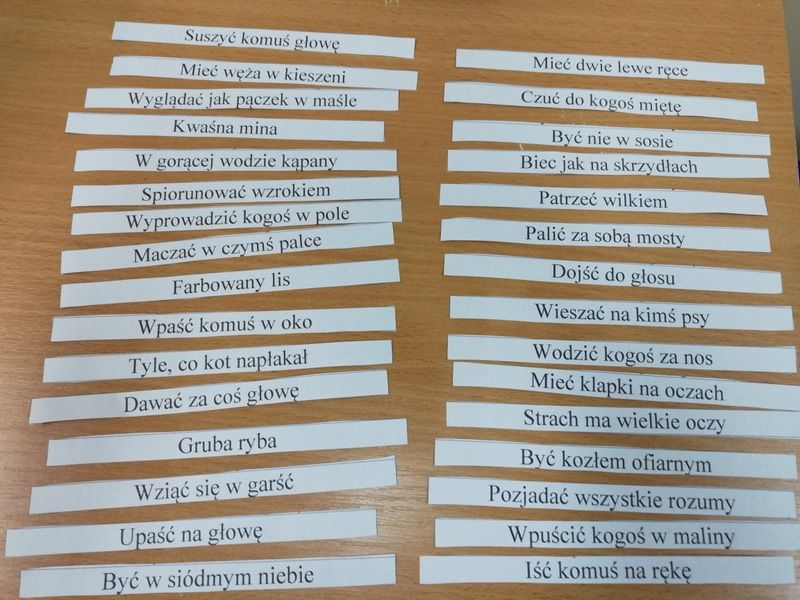 Suszyć komuś głowę
Mieć węża w kieszeni
Wyglądać jak pączek w maśle
Kwaśna mina
W gorącej wodzie kąpany
Spiorunować wzrokiem
Wyprowadzić kogoś w pole
Maczać w czymś palce
Farbowany lis
Wpaść komuś w oko
Tyle, co kot napłakał
Dawać za coś głowę
Gruba ryba
Wziąć się w garść
Upaść na głowę
Być w siódmym niebie
Mieć dwie lewe ręce
Czuć do kogoś miętę
Być nie w sosie
Biec jak na skrzydłach
Patrzeć wilkiem
Palić za sobą mosty
Dojść do głosu
Wieszać na kimś psy
Wodzić kogoś za nos
Mieć klapki na oczach
Strach ma wielkie oczy
Być kozłem ofiarnym
Pozjadać wszystkie rozumy
Wpuścić kogoś w maliny
Iść komuś na rękę